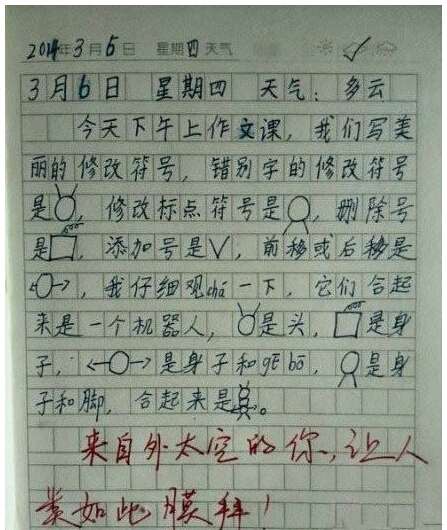 2014年3月6日 星期四 天气
3月6日 星期四 天气：多云
今天下午上作文课，我们写美
丽的修改符号，错别字的修改符号
是，修改标点符号是，删除号
是，添加号是√，前移或后移是
，我仔细观chá一下，它们合起
来是一个机器人，是头，是身
子，是身子和gē bō，是身
子和脚，合起来是。
来自外太空的你，让人
类如此膜拜！